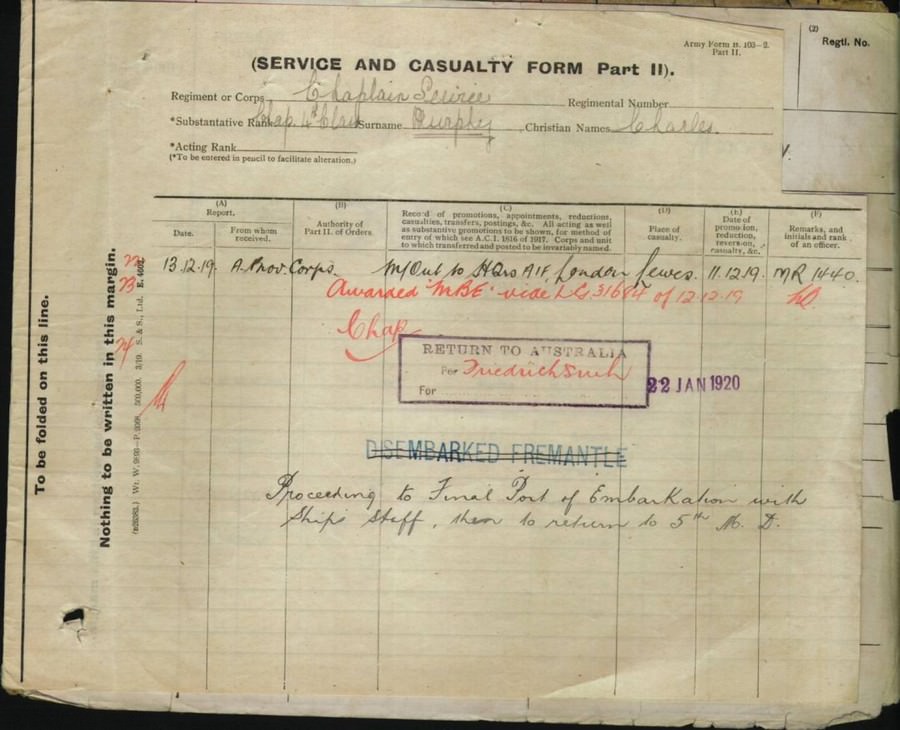 Army Form B. 103—2.
Part II.
(2)
Regtl. No.
(SERVICE AND CASUALTY FORM Part II).
Regiment or Corps Chaplain Service Regimental Number
*Substantive Rank Chap. 4th Class Surname Murphy , Christian Names Charles.
*Acting Rank
(*To be entered in pencil to facilitate alteration.)
(A)
Report.
Date.
From whom
received.
(B)
Authority of
Part II. of Orders.
(C)
Record of promotions, appointments, reductions,
casualties, transfers, postings, &c. All acting as well
as substantive promotions to be shown, for method of
entry of which see A.C.I. 1816 of 1917. Corps and unit
to which transferred and posted to be invariably named.
(D)
Place of
casualty.
(E)
Date of
promotion,
reduction,
reversion,
casualty, &c.
(F)
Remarks, and
initials and rank
of an officer.
13.12.19. A. Prov. Corps. M/Out to Hdqrs AIF, London Lewes. 11.12.19. MR 1440.
Awarded "MBE" vide LG 31684 of 12.12.19
Chap
RETURN TO AUSTRALIA
Per
For
22 JAN 1920
DISEMBARKED FREMANTLE
Proceeding to Final Port of Embarkation with
Ships Staff, then to return to 5th M. D.
To be folded on this line.
Nothing to be written in this margin.